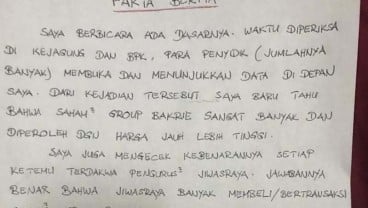 FAKTA BERITA
SAYA BERBICARA ADA DASARNYA. WAKTU DIPERIKSA
DI KEJAGUNG DAN BPK, PARA PENYIDIK (JUMLAHNYA
BANYAK) MEMBUKA DAN MENUNJUKKAN DATA DI DEPAN
SAYA. DARI KEJADIAN TERSEBUT SAYA BARU TAHU
BAHWA SAHAM² GROUP BAKRIE SANGAT BANYAK DAN
DIPEROLEH DGN HARGA JAUH LEBIH TINGGI.
SAYA JUGA MENGECEK KEBENARANNYA SETIAP
KETEMU TERDAKWA PENGURUS² JIWASRAYA. JAWABANNYA
BENAR BAHWA JIWASRAYA BANYAK MEMBELI/BERTRANSAKSI